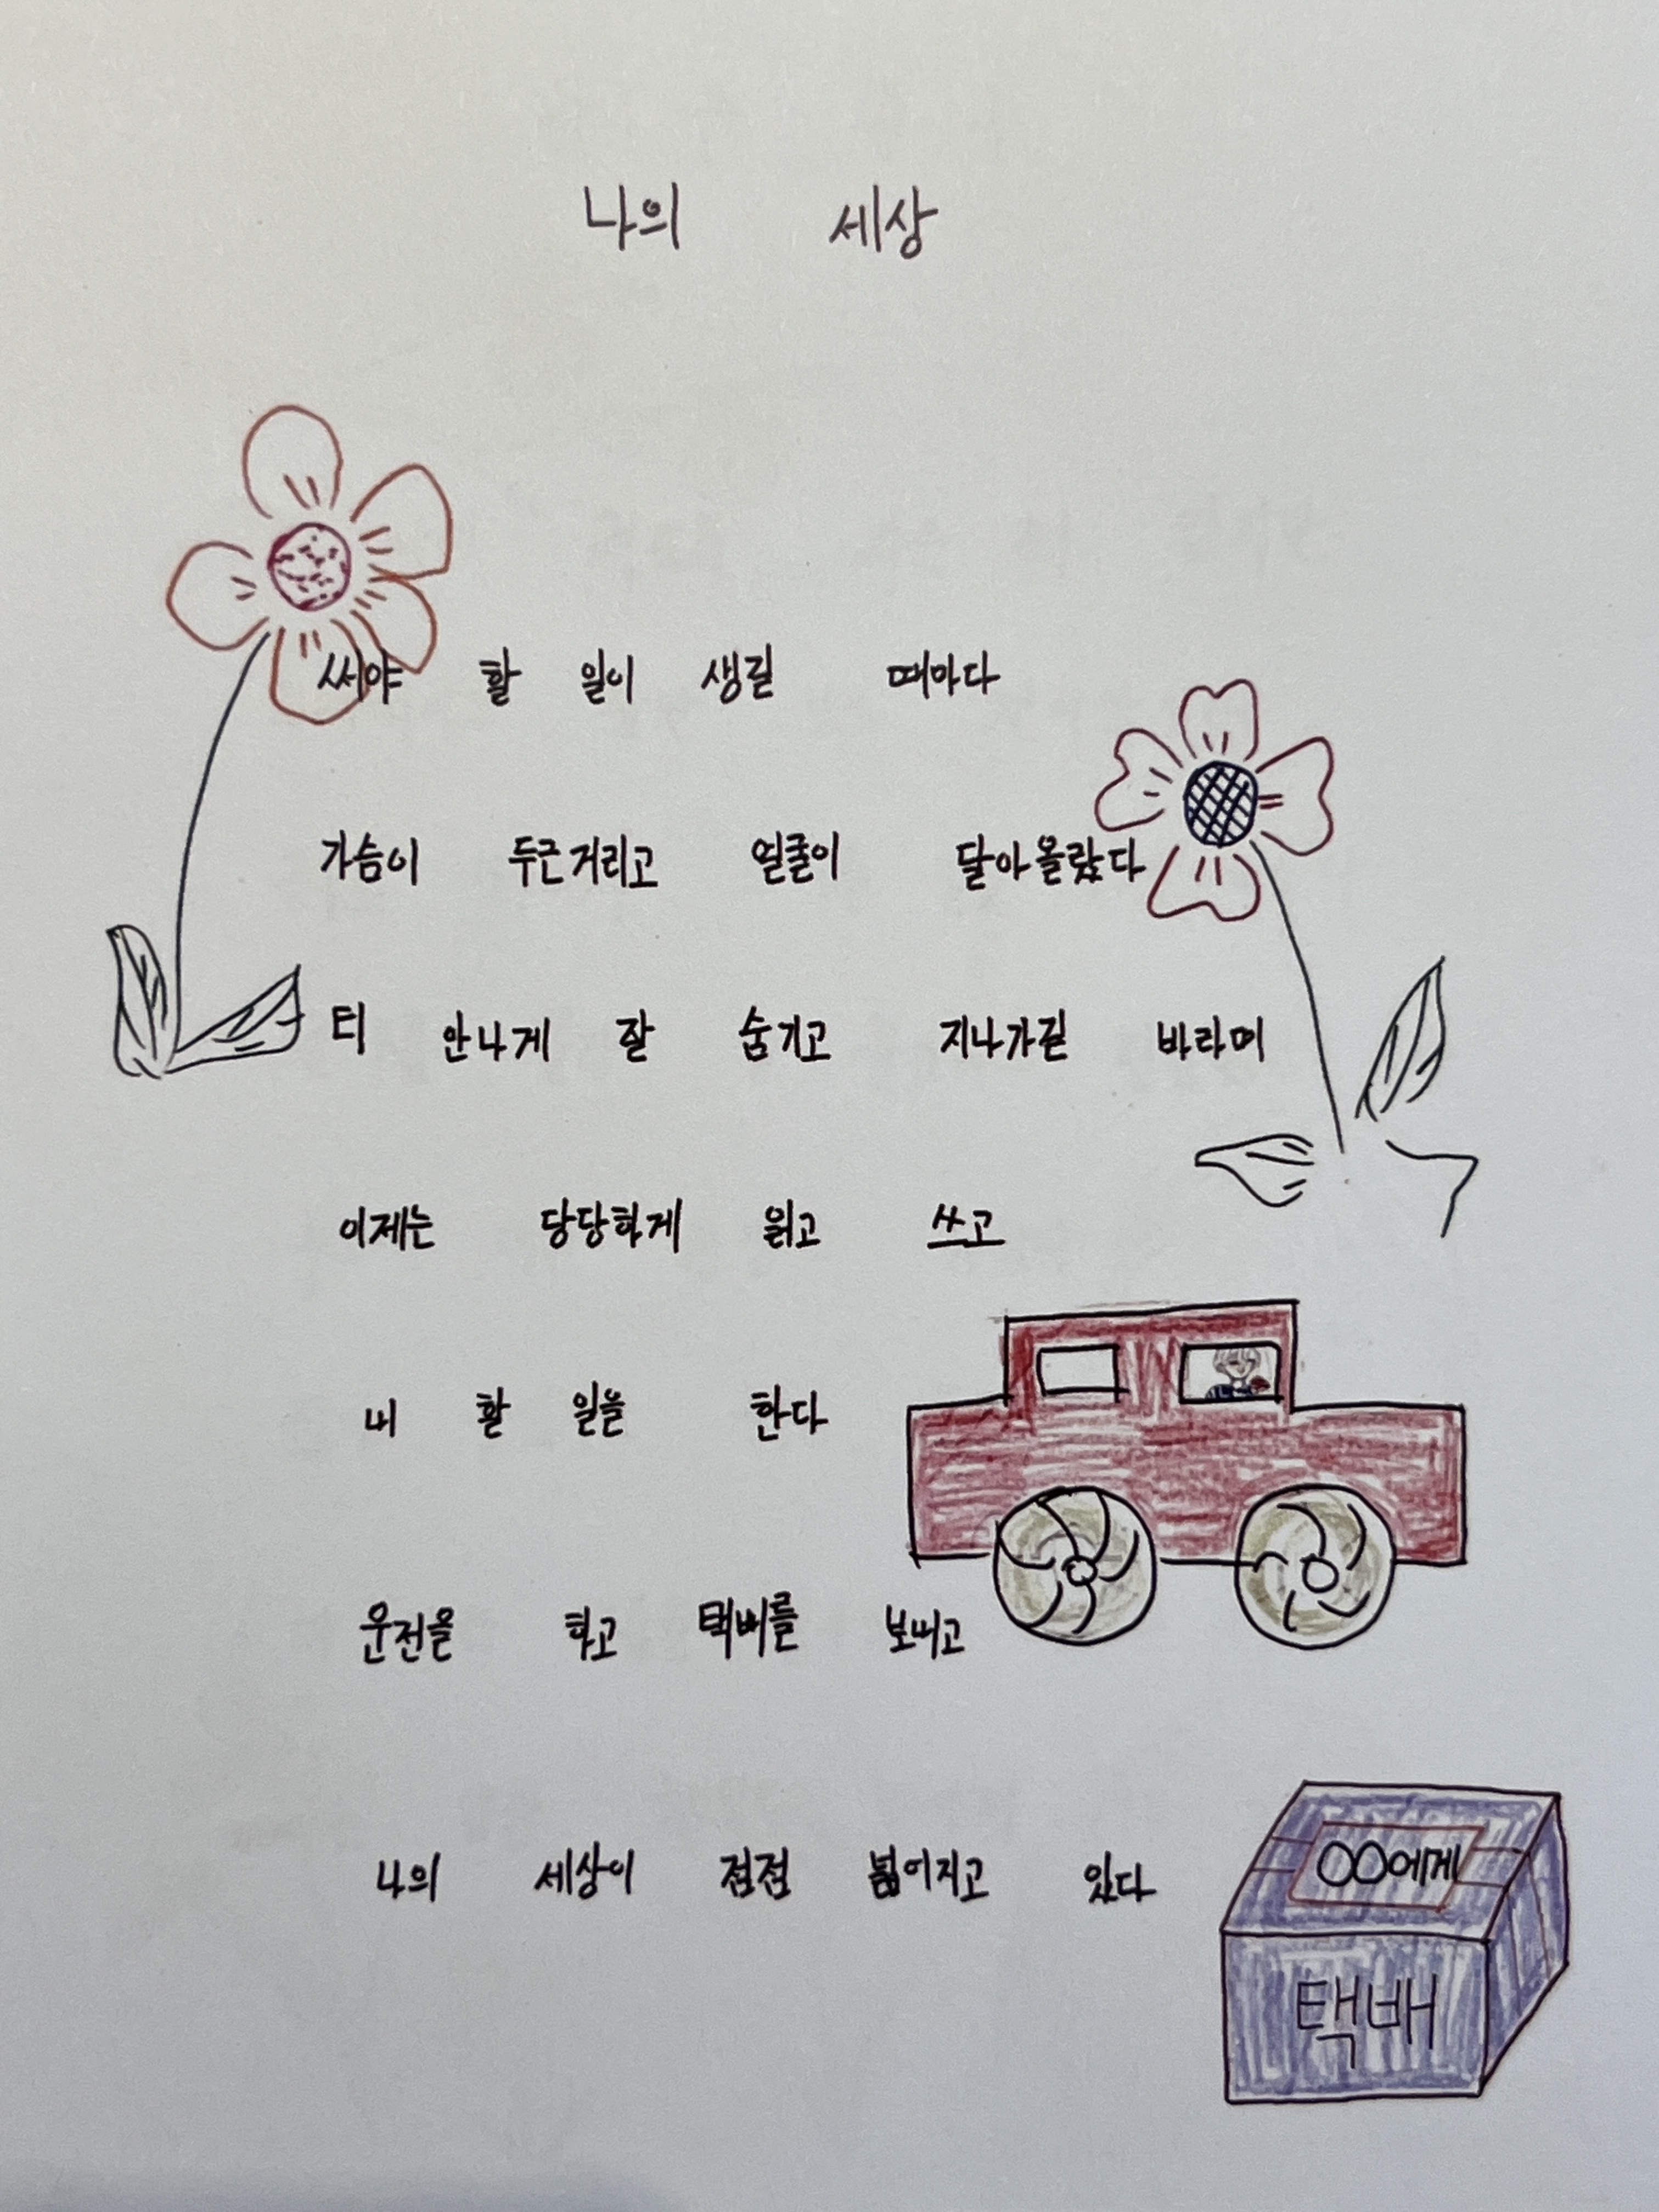 나의 세상
써야 할 일이 생길 때마다
가슴이 두근거리고 얼굴이 달아올랐다
티 안나게 잘 숨기고 지나가길 바라며
이제는 당당하게 읽고 쓰고
내 할 일을 한다
운전을 하고 택배를 보내고
나의 세상이 점점 넓어지고 있다
○○에게
택배